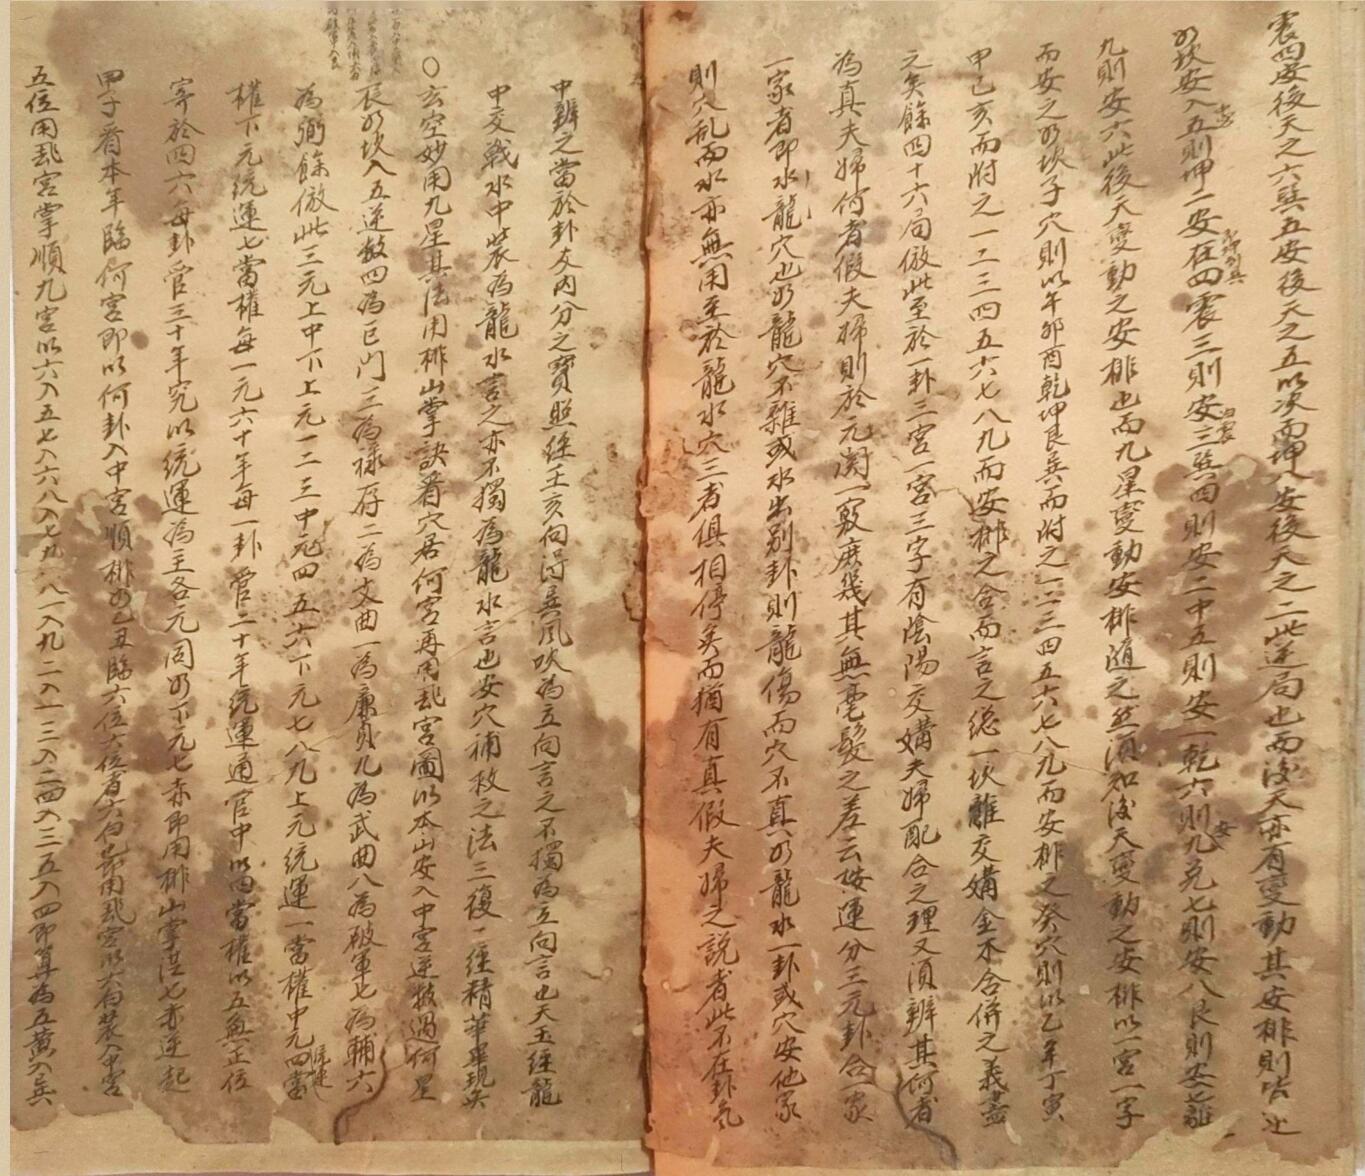 震四安後天之六巽五安後天之五以次而坤八安後天之二此逆局也而後天亦有變動其安排則皆逆
如坎安入五則坤二安在四震三則安三巽四則安二中五則安一乾六則九兌七則安八艮則安七離
九則安六此後天變動之安排也而九星變動安排隨之然須知後天變動之安排以一宮一字
而安之如坎子穴則以午卯酉乾坤艮巽而附之一二三四五六七八九而安排之癸穴則以乙辛丁寅
甲己亥而附之一二三四五六七八九而安排之合而言之總一坎離交媾金木合併之義盡
之矣餘四十六局倣此至於一卦三宮一宮三字有陰陽交媾夫婦配合之理又須辨其何者
為真夫婦何者假夫婦則於元關一竅庶幾其無毫髮之差云按運分三元卦合一家
一家者即水龍穴也如龍穴不雜或水出別卦則龍傷而穴不真如龍水一卦或穴安他家
則穴乱而水亦無用至於龍水穴三者俱相停矣而猶有真假夫婦之說者此不在卦氣
中辨之當於卦爻內分之寶照經壬亥向得巽風吹為立向言之不獨為立向言也天玉經龍
中交戰水中裝為龍水言之亦不獨為龍水言也安穴補救之法三復二經精華畢現矣
○玄空妙用九星其法用排山掌訣看穴居何宮再用飛宮圖以本山安入中宮逆數過何星
辰如坎入五逆數四為巨門三為祿存二為文曲一為廉貞九為武曲八為破軍七為輔六
為弼餘倣此三元上中下上元一二三中元四五六下元七八九上元統運一當權中元四當
權下元統運七當權每一元六十年每一卦管二十年統運通官中以四當權以五無正位
寄於四六每卦管三十年究以統運為主各元同如下元七赤即用排山掌法七赤逆起
甲子看本年臨何宮即以何卦入中宮順排如乙丑臨六位六位者六白也即用飛宮以六白裝入中宮
五位用飛宮掌順九宮以六入五七入六八入七九入八一入九二入一三入二四入三五入四即算為五黃入巽